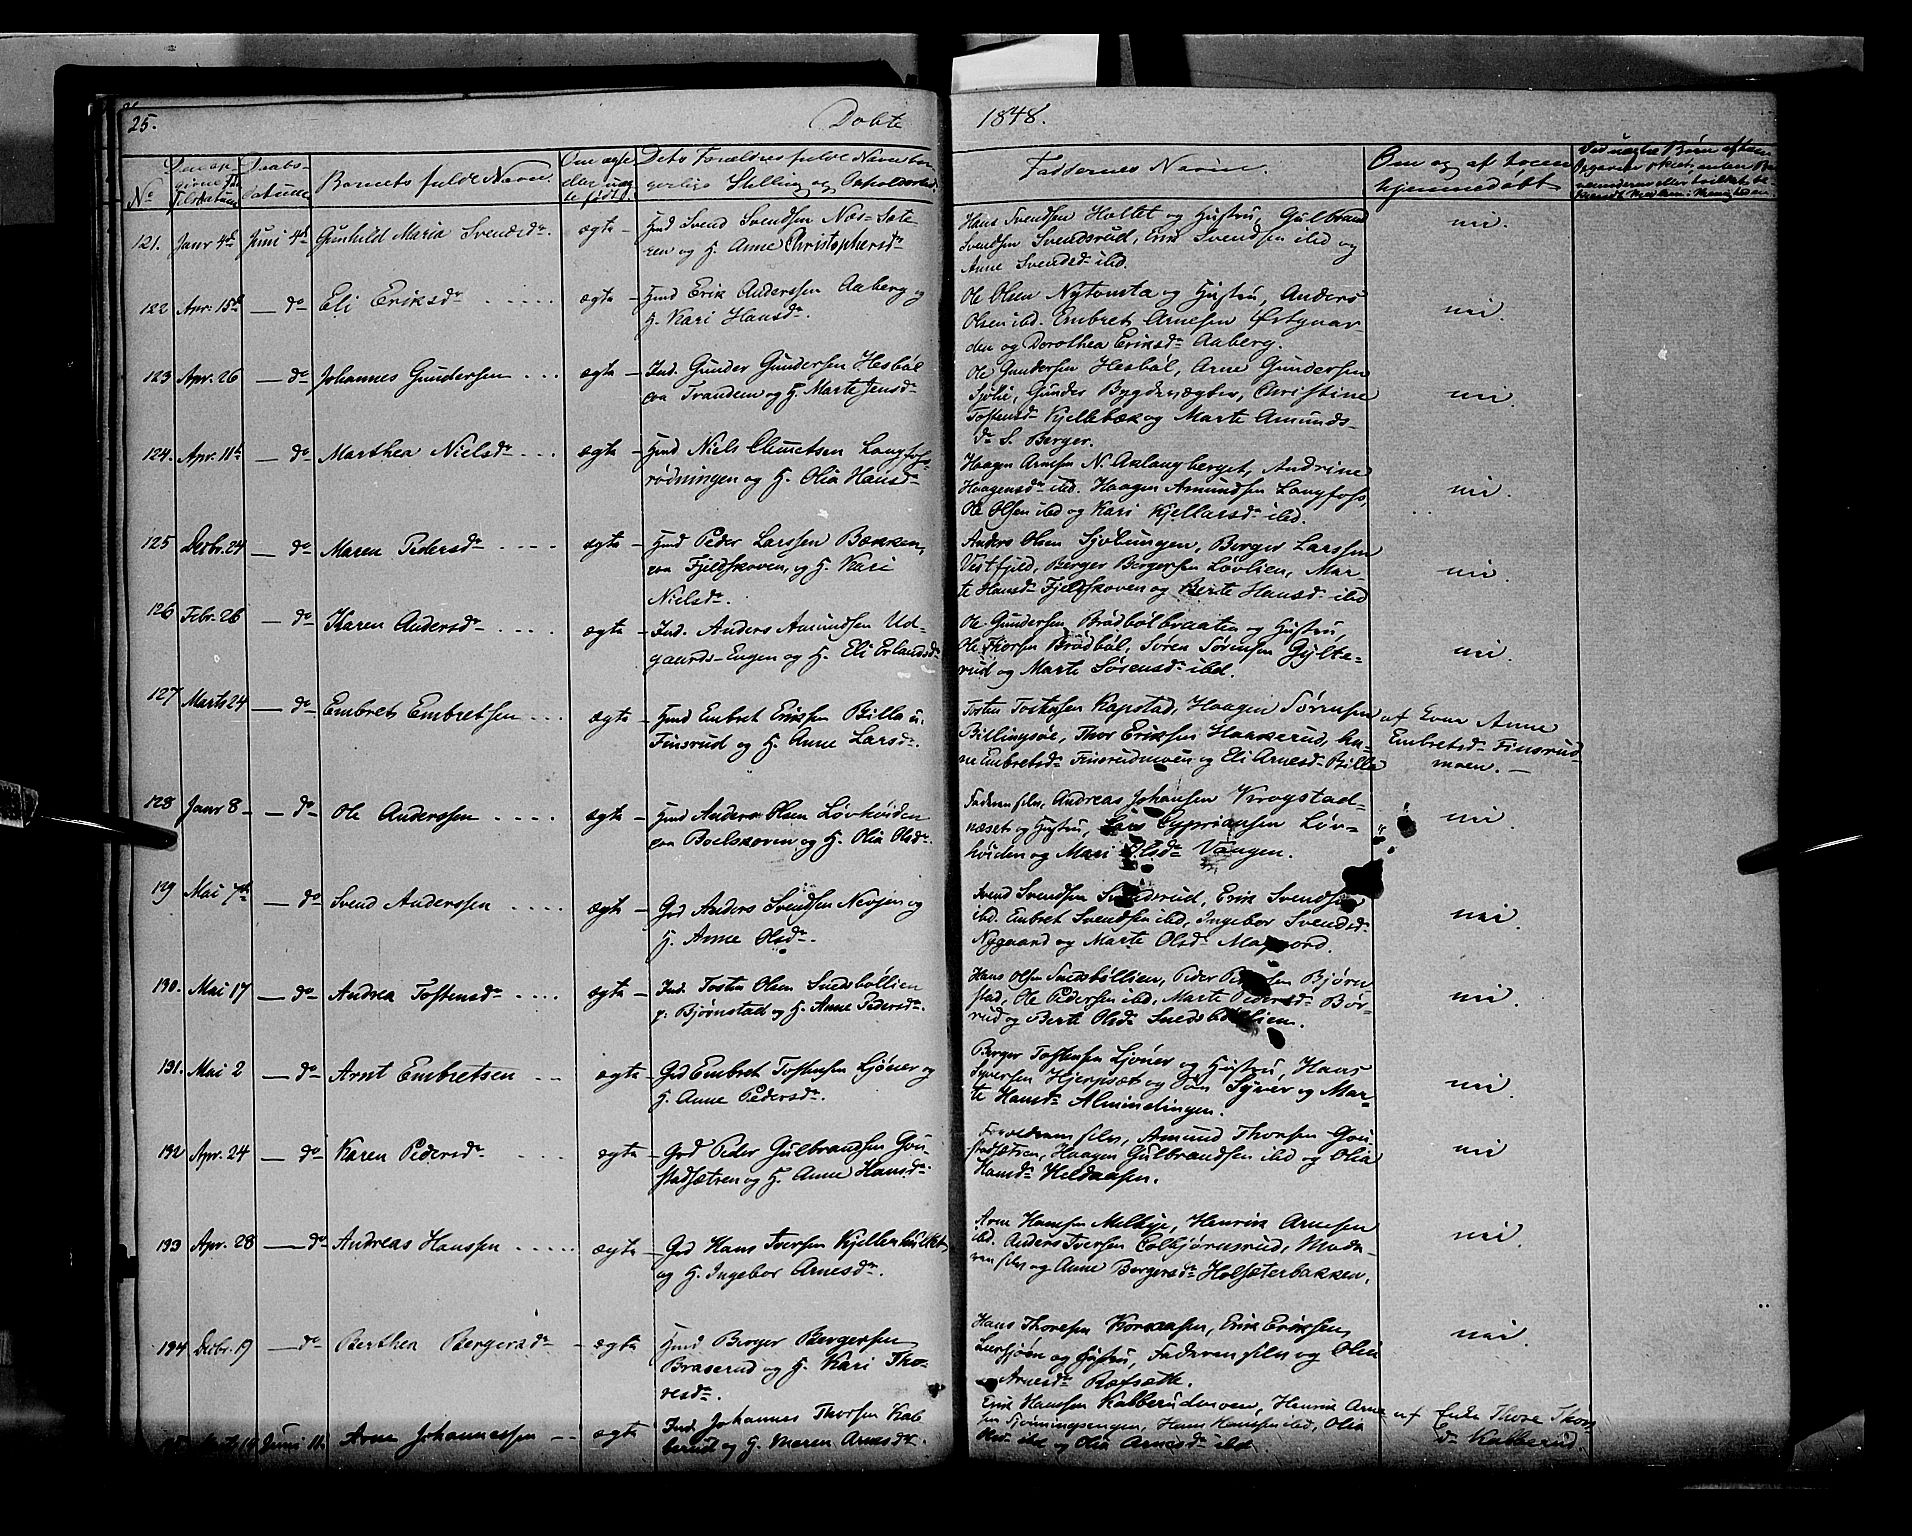 25. Døbte 1848.
No Den opgivne Fødselsdatum Daabsdatum Barnets fulde Navn. Om ægte eller uægte født. Dets Forældres fulde Navn, borgerlige Stilling og Opholdssted Faddernes Navn. Om og af hvem hjemmedøbt
121. Janr 4de Juni 4de Gunhild Maria Svendsdr ægte Hmd Svend Svendsen Næs-Sæteren og H. Anne Christophersdr
Hans Svendsen Holtet og Hustru, Gulbrand
Svendsen Svendsrud, Erik Svendsen ibd og
Anne Svendsdr ibd.
nei.
122 Apr. 15de — do Eli Eriksdr ægte Hmd Erik Anderssen Aaberg og
H. Kari Hansdr.
Ole Olsen Nytomta og Hustru, Anders
Olsen ibd. Embret Arnesen Østgaarden og Dorothea Eriksdr Aaberg.
nei.
123 Apr. 26 — do Johannes Gundersen ægte Ind. Gunder Gundersen Hesbøl
paa Trauden og H. Marte Jensdr
Ole Gundersen Hesbøl, Arne Gundersen
Sjølie, Gunder Bygdevægter, Christine
Tostensdr Kjelkbæk og Marte Amundsdr S. Berger.
nei.
124. Apr. 11te — do Marthea Nielsdr ægte Hmd Niels Clemetsen Langfosrødningen og H. Olia Hansdr
Haagen Arnesen N. Aslangberget, Andrine
Haagensdr ibd. Haagen Amundsen Langfos,
Ole Olsen ibd og Kari Kjellarsdr ibd.
nei.
125 Decbr. 24 — do Maren Pedersdr ægte Hmd Peder Larssen Bækken,
paa Fjeldskoven, og H. Kari
Nielsdr.
Anders Olsen Sjøliungen, Berger Larssen
Vestfjeld, Berger Bergersen Løvlien, Marte Hansdr Fjeldskoven og Berte Hansdr ibd
nei.
126 Febr. 26 — do Karen Andersdr ægte Ind. Anders Amundsen Udgaards-Engen og H. Eli Erlandsdr
Ole Gundersen Brødbølbraaten og Hustru,
Ole Thorsen Brødbøl, Søren Sørensen Gylterud og Marte Sørensdr ibd.
nei.
127 Marts 24 — do Embret Embretsen ægte Hmd Embret Eriksen Billa u.
Finsrud og H. Anne Larsdr.
Tosten Tostensen Rapstad, Haagen Sørensen
Billingsøe, Thor Eriksen Haakerud, Anne Embretsdr Finsrudmoen og Eli Arnesdr Billa
af Enur Anne
Embretsdr Finsrudmoen.
128 Janr 8 — do Ole Anderssen ægte Hmd Anders Olsen Løvhøiden
paa Boelskoven og H. Olia Olsdr.
Faderen selv, Andreas Johansen Krogstadnæset og Hustru, Lars Cypriansen Løvhøiden og Mari Olsdr Vangen.
nei.
129 Mai 7de — do Svend Anderssen ægte Grd Anders Svendsen Nevjen og
H. Anne Olsdr.
Svend Svendsen Svendsrud, Erik Svendsen
ibd. Embret Svendsen ibd, Ingebor Svendsdr
Nygaard og Marte Olsdr
nei.
130. Mai 17 — do Andrea Tostensdr ægte Ind. Tosten Olsen Snedsbøllien
p. Bjørnstad og H. Anne Pedersdr.
Hans Olsen Snedsbøllien, Peder Bjørnstad, Ole Pedersen ibd, Marte Pedersdr Børrud og Berte Olsdr Snedsbøllien.
nei.
131. Mai 2 — do Arnt Embretsen ægte Grd Embret Tostensen Ljøner og
H. Anne Pedersdr.
Berger Tostensen Ljøner og Hustru, Hans
Syversen Hjerpsæt og Søn Syver og Marte Hansdr Almindingen.
nei.
132 Apr. 24 — do Karen Pedersdr ægte Grd Peder Gulbrandsen Goustadsætren og H. Anne Hansdr
Forældrene selv, Amund Thorsen Goustadsætren, Haagen Gulbrandsen ibd og Olia
Hansdr Heldaasen.
nei
133 Apr. 28 — do Andreas Hanssen ægte Grd Hans Iversen Kjellenhulket
og H. Ingebor Arnesdr.
Arne Hansen Melbye, Henrik Arnesen
ibd. Anders Iversen Colbjørnsrud, Moderen selv og Anne Bergersdr Holsæterbakken.
nei.
134 Decbr. 19 — do Berthea Bergersdr ægte Hmd Berger Bergersen
Braserud og H. Kari Thoresdr.
Hans Thoresen Korsaasen, Erik Eriksen
og Hustru, Faderen selv og Olia
Arnesdr Rafsætt.
nei
Juni 11. Arne Johannessen ægte Ind. Johannes Thorsen Kabberud og H. Maren Arnesdr.
Erik Hanssen Kabberudmoen, Henrik Arnesen Tjernningsengen, Hans Hanssen ibd, Olia
Olsdr ibd og Olia Arnesdr ibd.
af Enke Thore Thorsdr Kabberud